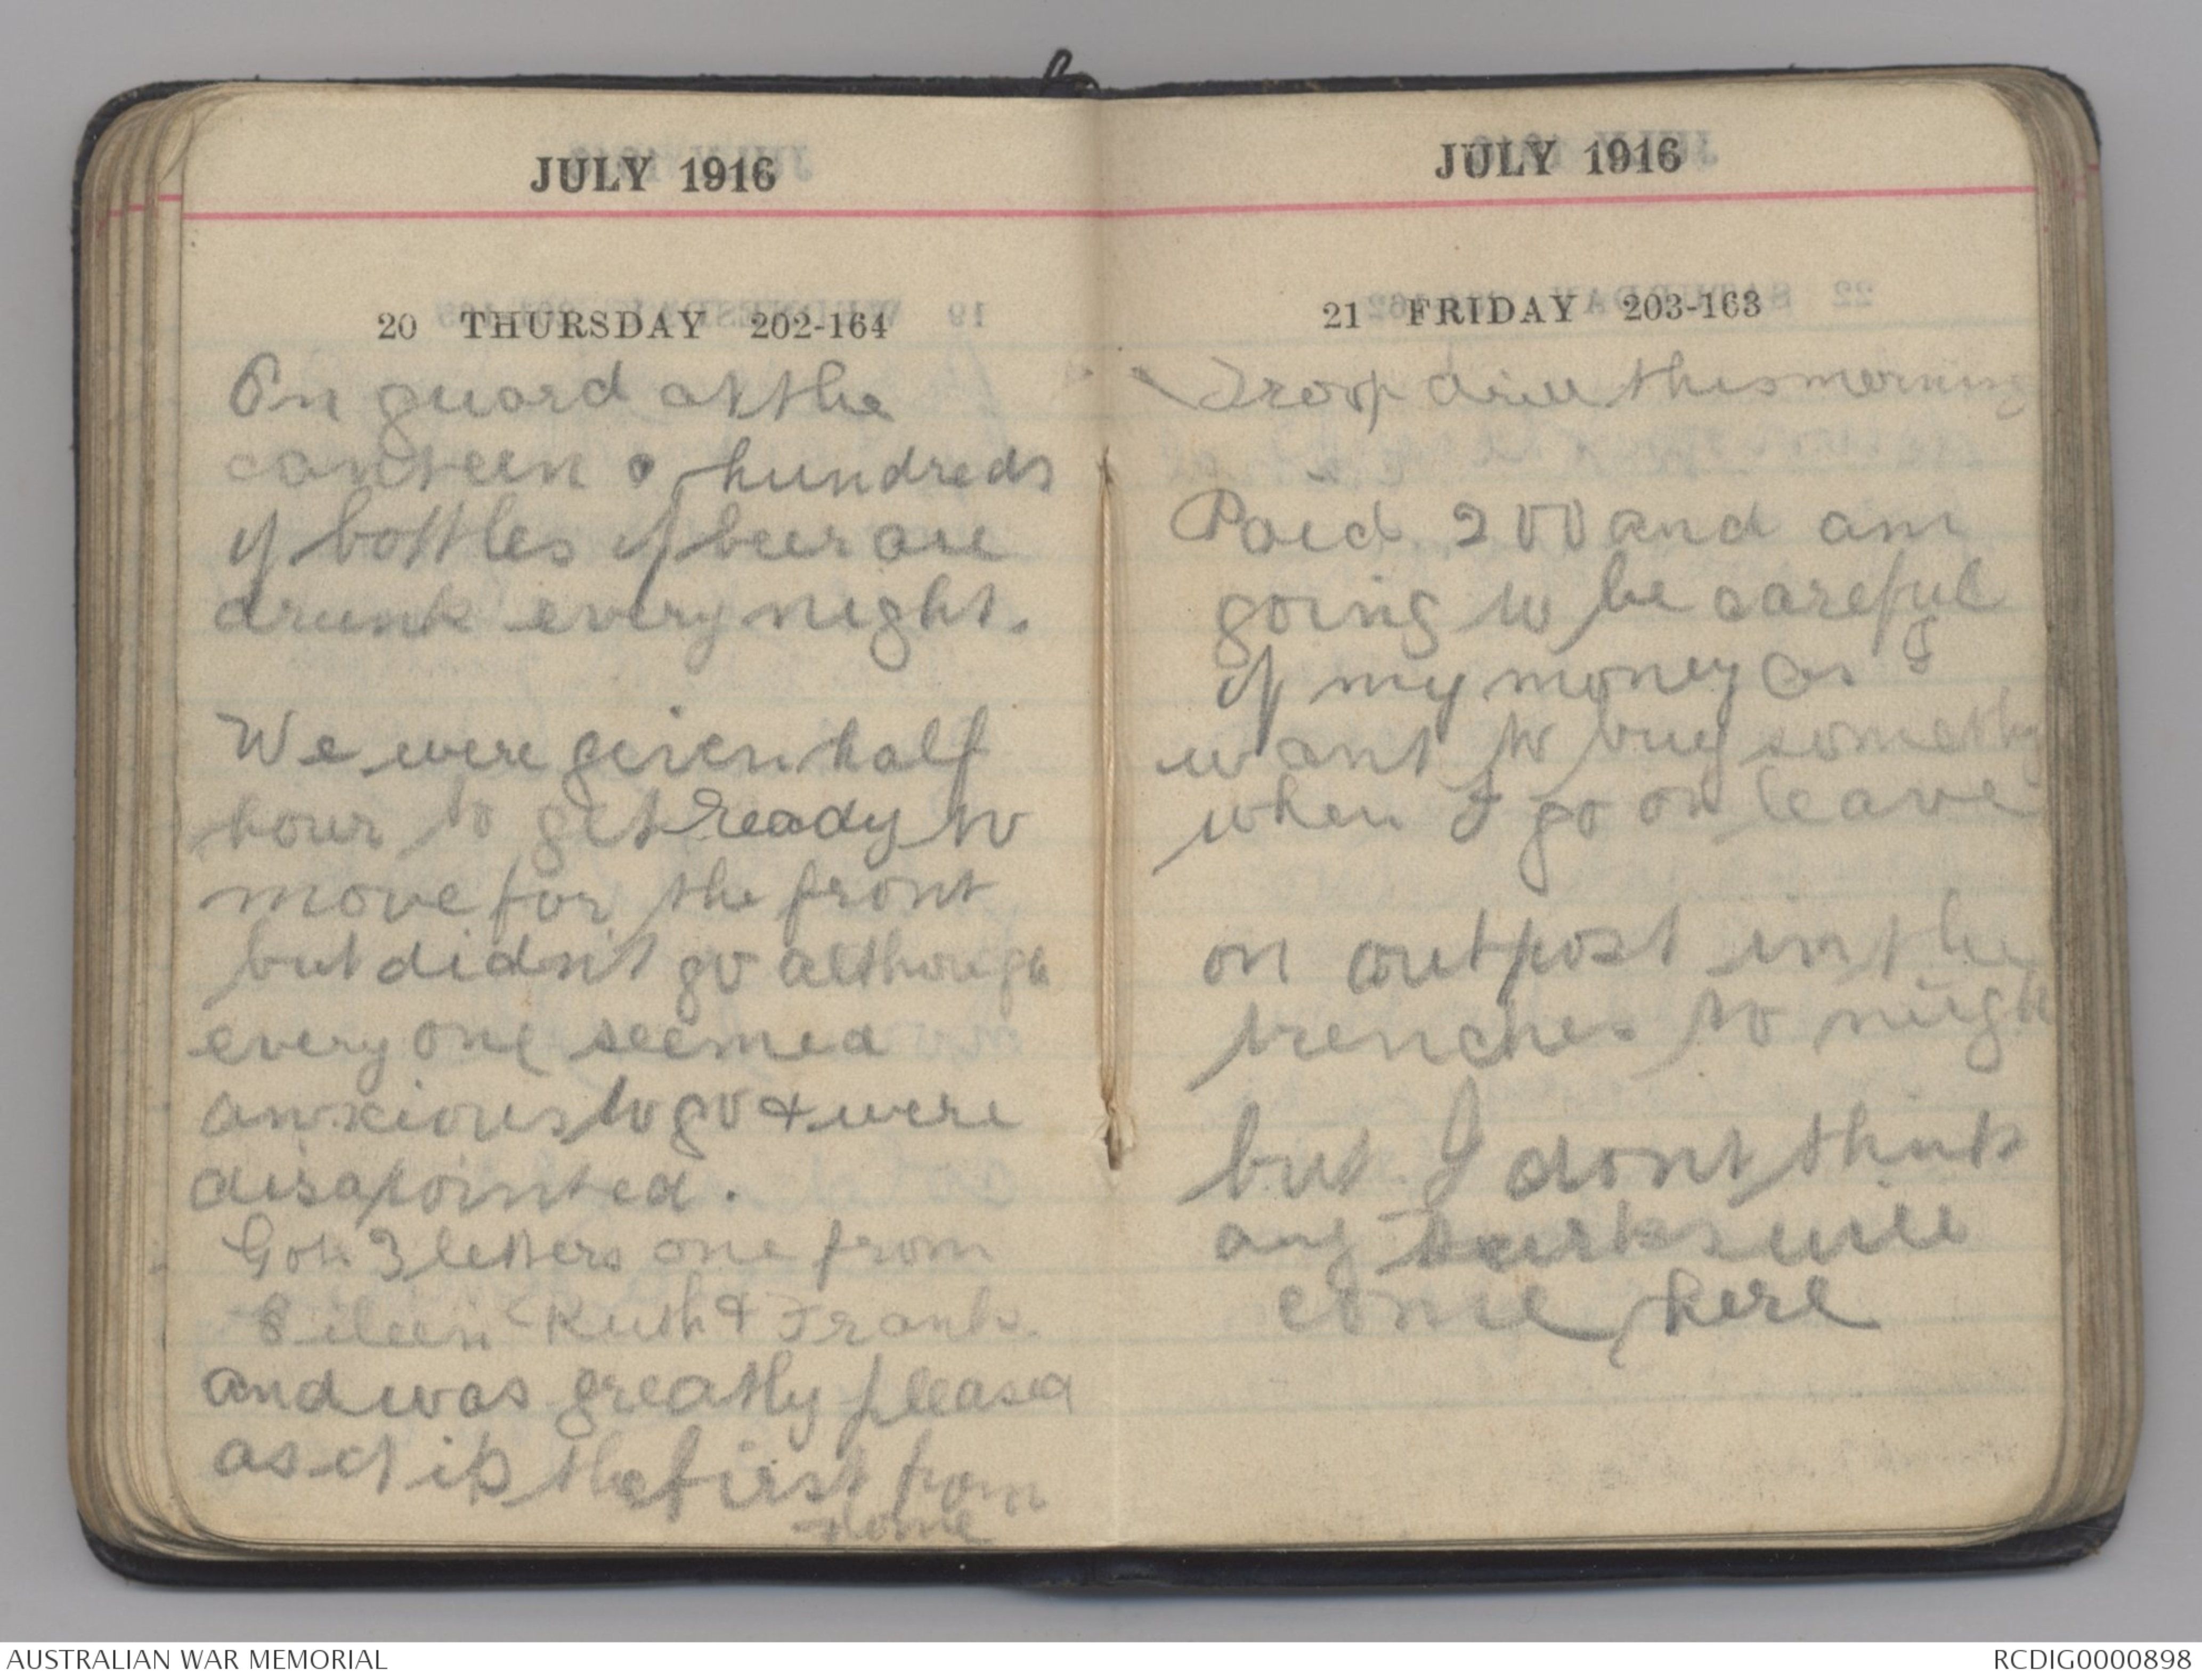 JULY 1916
20 THURSDAY 202-164
On guard at the
canteen & hundreds
of bottles of beer are
drunk every night.
We were given half
hour to get ready to
move for the front
but didn't go although
every one seemed
anxious to go & were
disapointed.
Got 3 letters one from
Eileen Ruth & Frank.
and was greatly pleased
as it is the first from
home
JULY 1916
21 FRIDAY 203-163
Troop drill this morning
Paid 200 and am
going to be careful
of my money as I
want to buy somethg
when I go on leave
on outpost in the
trenches to night
but I dont think
any Turks will
come here
AUSTRALIAN WAR MEMORIAL
RCDIG0000898